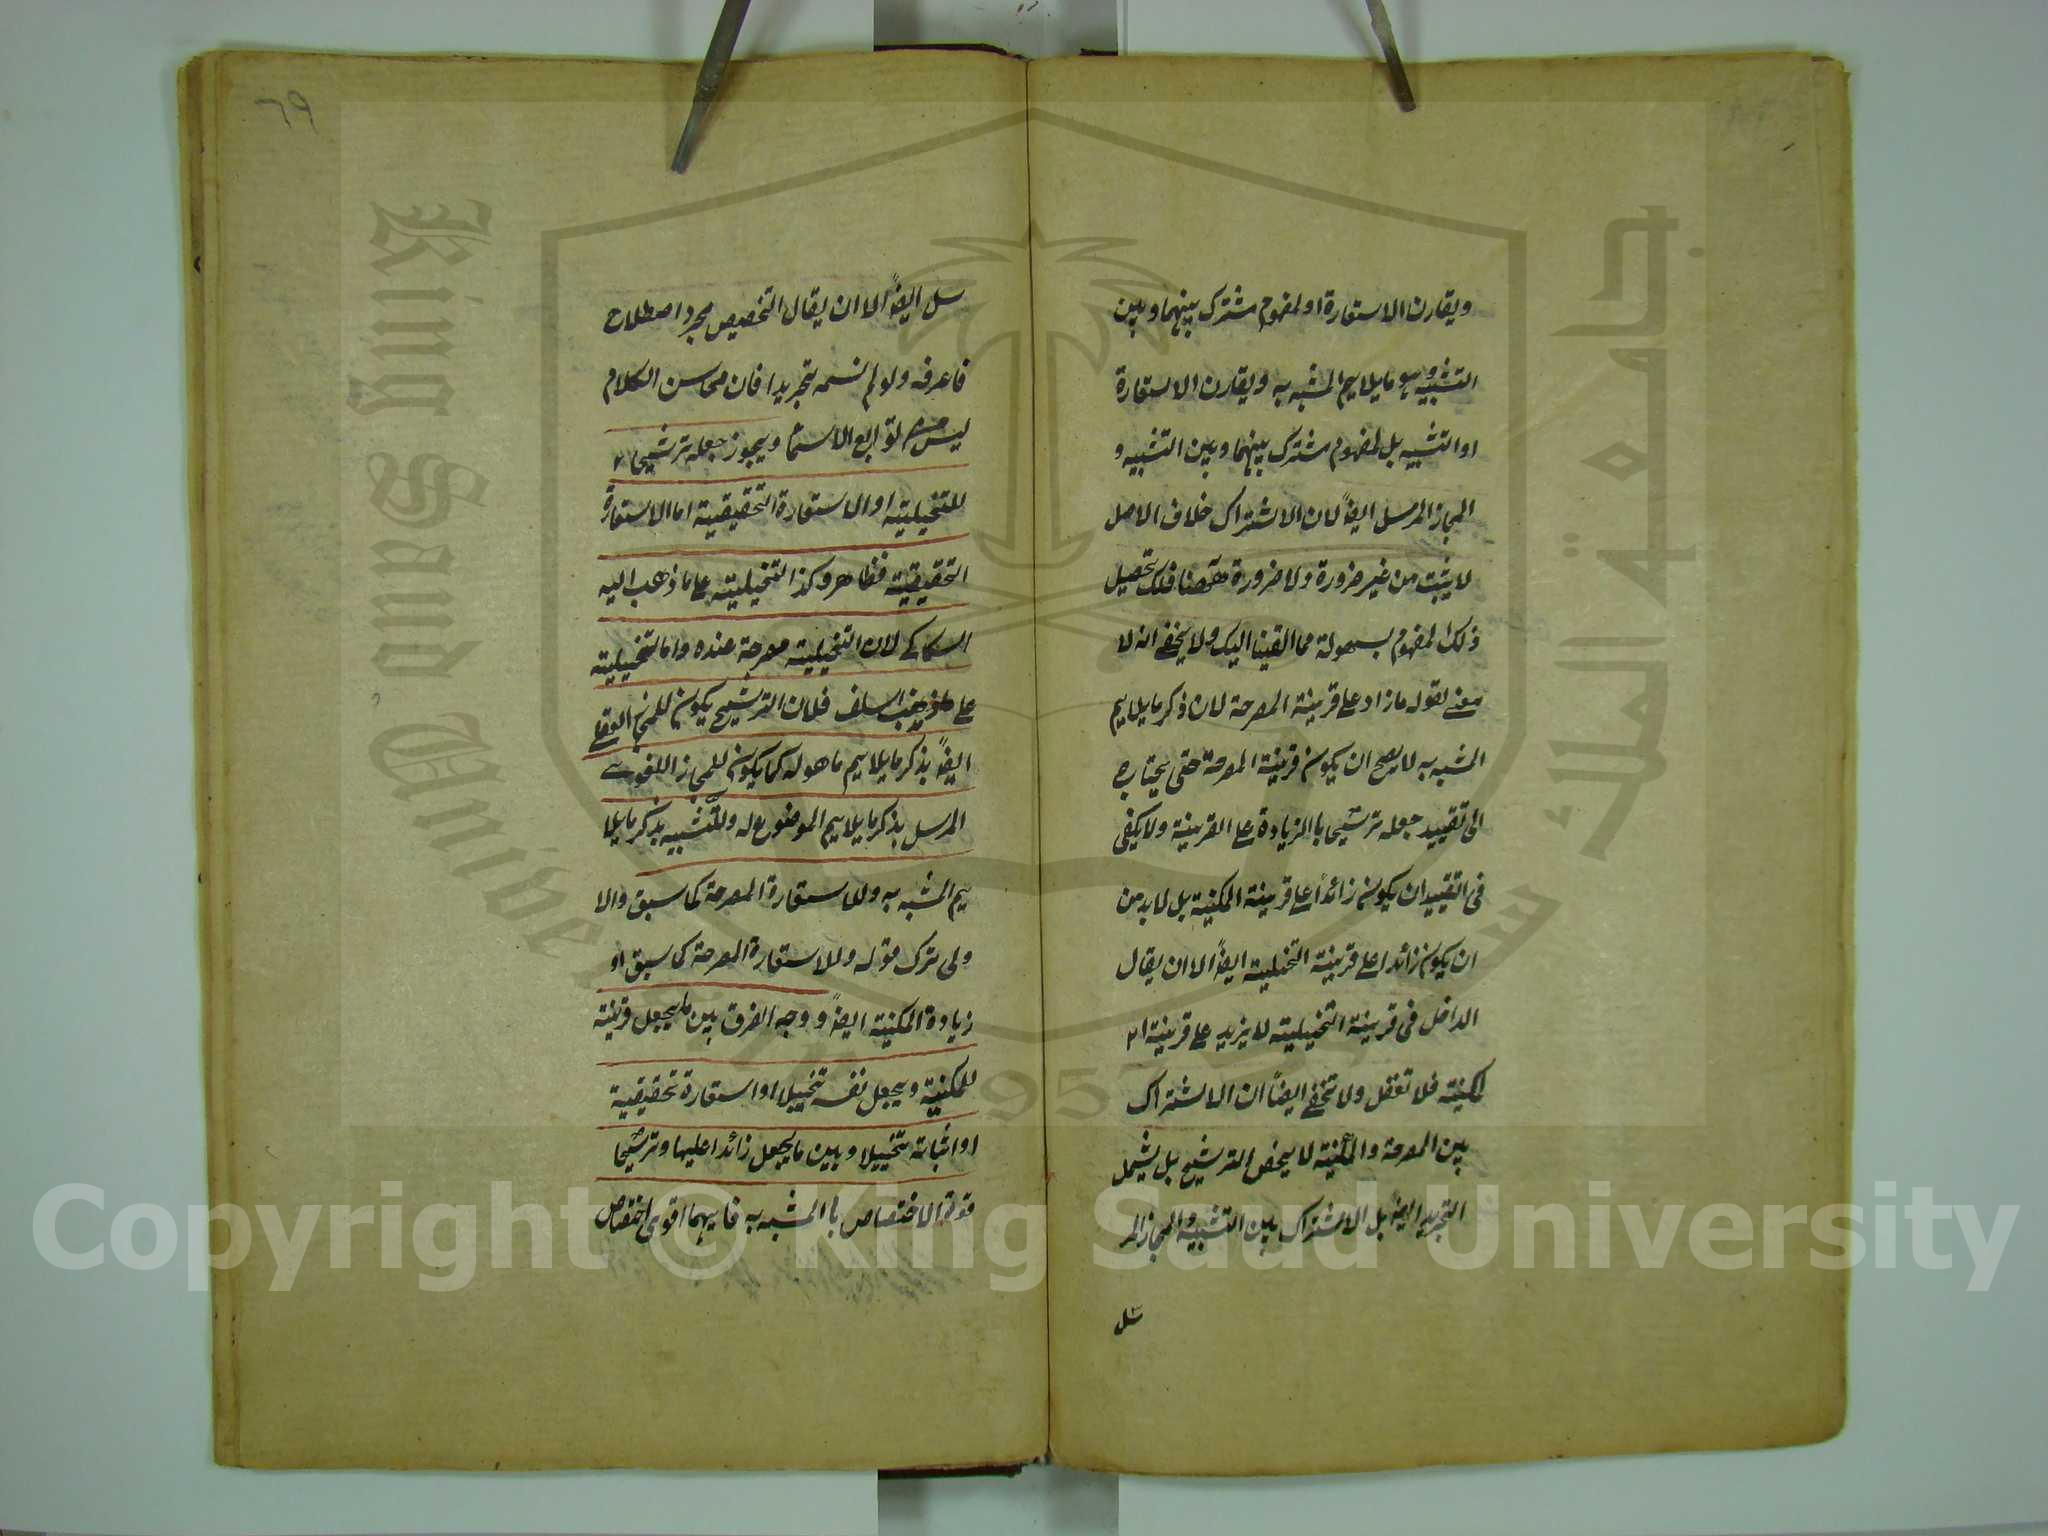 ويقارن الاستعارة او لمفهوم مشترك بينهما وبين
التشبيه وهو ما يلايم المشبه به ويقارن الاستعارة
او التشبيه بل لمفهوم مشترك بينهما وبين التشبيه و
المجاز المرسل ايضاً لان الاشتراك خلاف الاصل
لا يثبت من غير ضرورة ولا ضرورة ههنا فلك تحصيل
ذلك المفهوم بسهولة مما القينا اليك ولا يخفى انه لا
معنى لقوله ما زاد على قرينة المصرحة لان ذكر ما يلايم
المشبه به لا يصح ان يكون قرينة المصرحة حتى يحتاج
الى تقييد جعله ترشيحا بالزيادة على القرينة ولا يكفى
فى التقييد ان يكون زائداً على قرينة المكنية بل لابد من
ان يكون زائدا على قرينة التخييلية ايضاً الا ان يقال
الداخل فى قرينة التخييلية لا يزيد على قرينة ا
لمكنية فلا تغفل ولا تخفى ايضاً ان الاشتراك
بين المصرحة والمكنية لا يخص الترشيح بل يشمل
التجريد ايضاً بل الاشتراك بين التشبيه والمجاز المر
سل
٦٩
سل ايضاً الا ان يقال التخصيص مجرد اصطلاح
فاعرفه ولو لم نسمه تجريدا فان محاسن الكلام
ليس من توابع الاسماء ويجوز جعله ترشيحا
للتخييلية او الاستعارة التحقيقية اما الاستعارة
التحقيقية فظاهر وكذا التخييلية على ما ذهب اليه
السكاكى لان التخييلية مصرحة عنده واما التخييلية
على مذهب السلف فلان الترشيح يكون للمجاز العقلى
ايضاً بذكر ما يلايم ما هو له كما يكون للمجاز اللغوى
المرسل بذكر ما يلايم الموضوع له وللتشبيه بذكر ما يلا
يم المشبه به وللاستعارة المصرحة كما سبق والا
ولى ترك قوله وللاستعارة المصرحة كما سبق او
زيادة المكنية ايضاً و وجه الفرق بين ما يجعل قرينة
للمكنية ويجعل نفسه تخييلا او استعارة تحقيقية
او اثباته تخييلا وبين ما يجعل زائدا عليها وترشيحا
قوة الاختصاص بالمشبه به فايهما اقوى اختصاص
جامعة الملك سعود
King Saud University
1957
Copyright © King Saud University